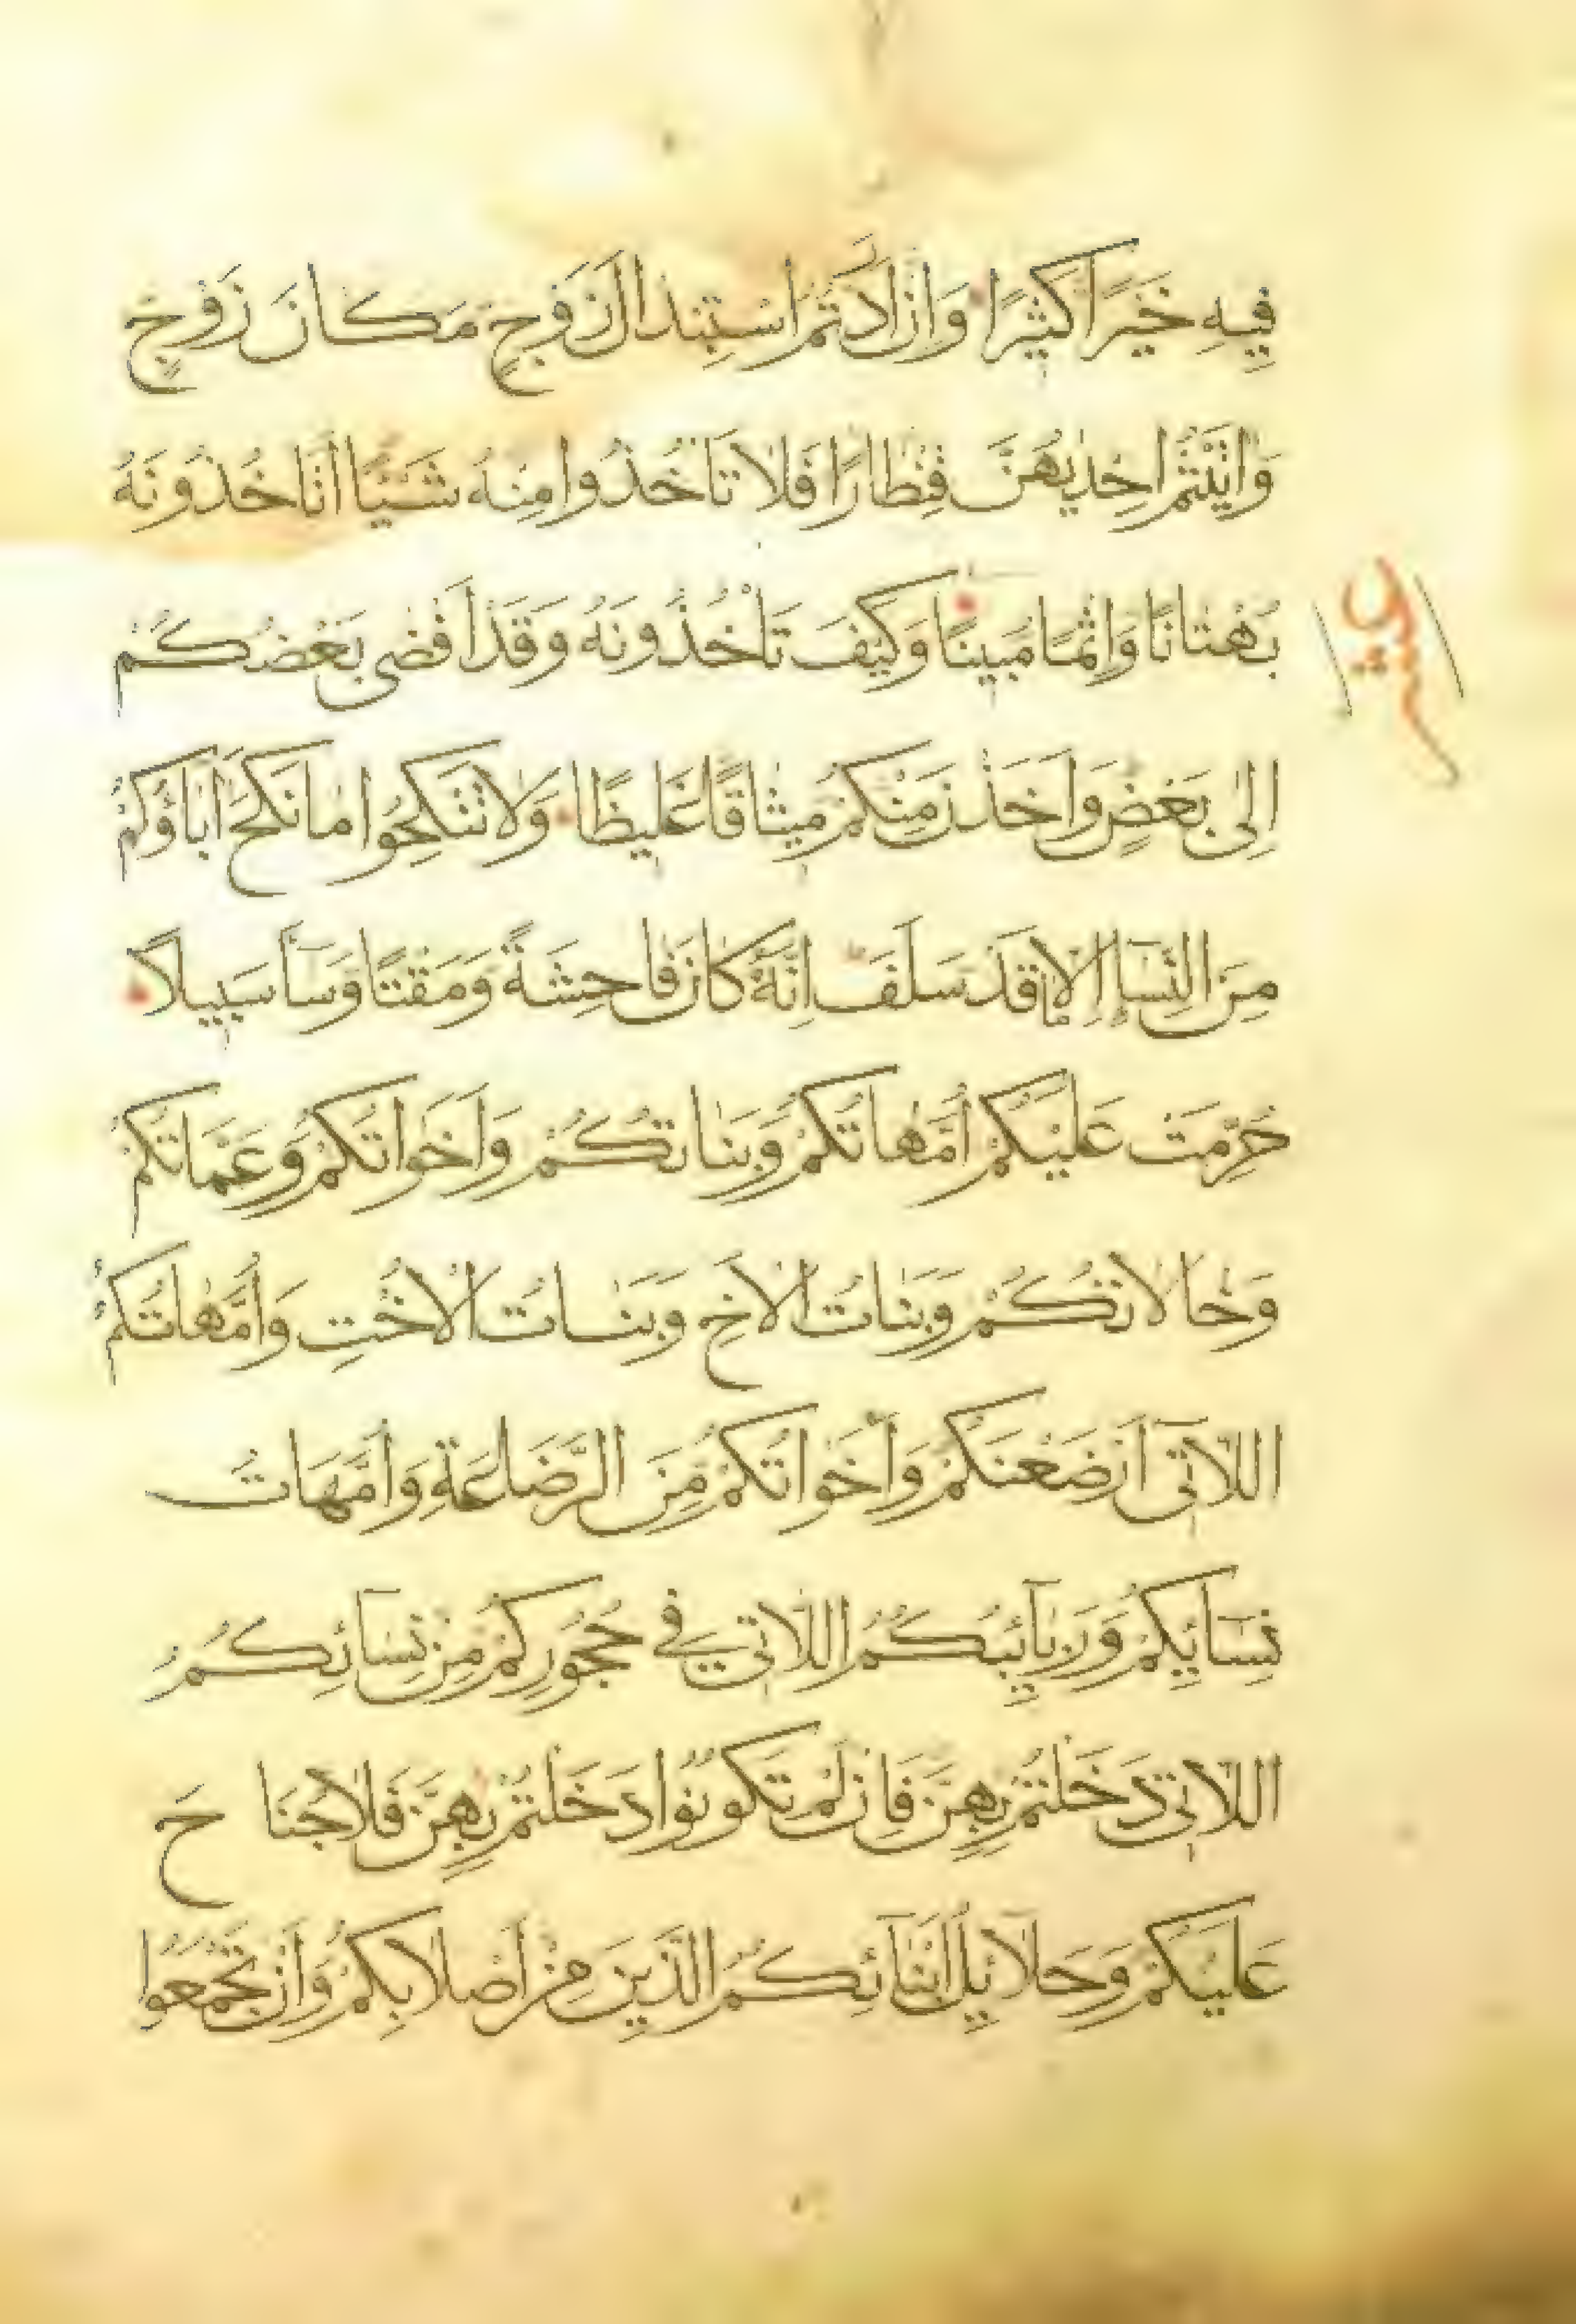 فِيهِ خَيْرًا كَثِيرًا وَاِنْ اَرَدْتُمُ اسْتِبْدَالَ زَوْجٍ مَكَانَ زَوْجٍ
وَاٰتَيْتُمْ اِحْدٰيهُنَّ قِنْطَارًا فَلَا تَاْخُذُوا مِنْهُ شَيْئًا اَتَاْخُذُونَهُ
بُهْتَانًا وَاِثْمًا مُبِينًا وَكَيْفَ تَاْخُذُونَهُ وَقَدْ اَفْضٰى بَعْضُكُمْ
اِلٰى بَعْضٍ وَاَخَذْنَ مِنْكُمْ مِيثَاقًا غَلِيظًا وَلَا تَنْكِحُوا مَا نَكَحَ اٰبَاؤُكُمْ
مِنَ النِّسَاءِ اِلَّا مَا قَدْ سَلَفَ اِنَّهُ كَانَ فَاحِشَةً وَمَقْتًا وَسَاءَ سَبِيلًا
حُرِّمَتْ عَلَيْكُمْ اُمَّهَاتُكُمْ وَبَنَاتُكُمْ وَاَخَوَاتُكُمْ وَعَمَّاتُكُمْ
وَخَالَاتُكُمْ وَبَنَاتُ الْاَخِ وَبَنَاتُ الْاُخْتِ وَاُمَّهَاتُكُمُ
اللَّاتِي اَرْضَعْنَكُمْ وَاَخَوَاتُكُمْ مِنَ الرَّضَاعَةِ وَاُمَّهَاتُ
نِسَائِكُمْ وَرَبَائِبُكُمُ اللَّاتِي فِي حُجُورِكُمْ مِنْ نِسَائِكُمُ
اللَّاتِي دَخَلْتُمْ بِهِنَّ فَاِنْ لَمْ تَكُونُوا دَخَلْتُمْ بِهِنَّ فَلَا جُنَاحَ
عَلَيْكُمْ وَحَلَائِلُ اَبْنَائِكُمُ الَّذِينَ مِنْ اَصْلَابِكُمْ وَاَنْ تَجْمَعُوا